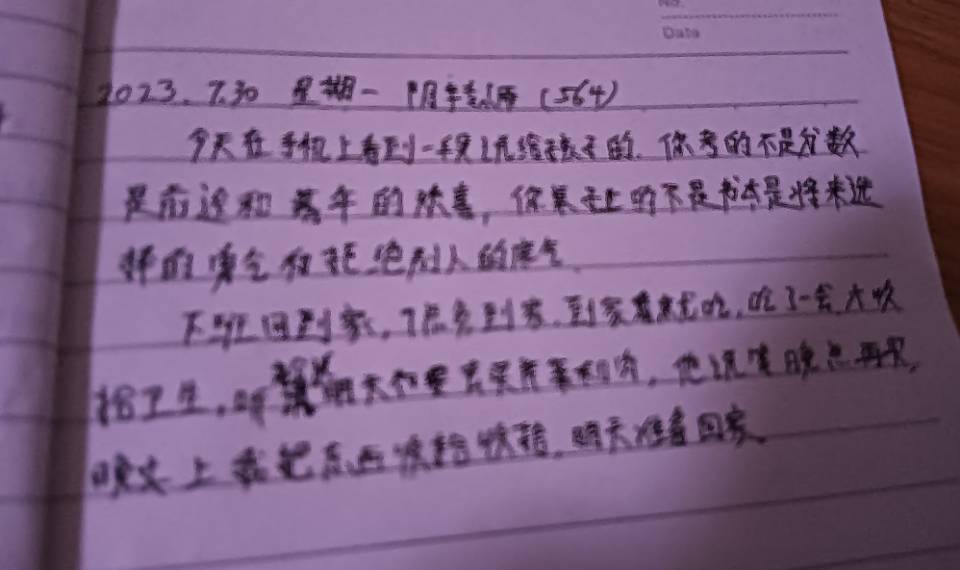 No.
Date
2023.7.30 星期一 阴转雨 (564)
今天在手机上看到一段说给孩子的,你考的不是分数
是前途和 的欢喜,你 上的不是书本是将来选
择的勇气和拒绝别人的底气.
下班回到家,7点多到家,到家 就吃,吃了一会
搞卫生,明天 要去买 , 他说 晚点再买,
晚 上我把东西收拾收拾,明天准备回家.